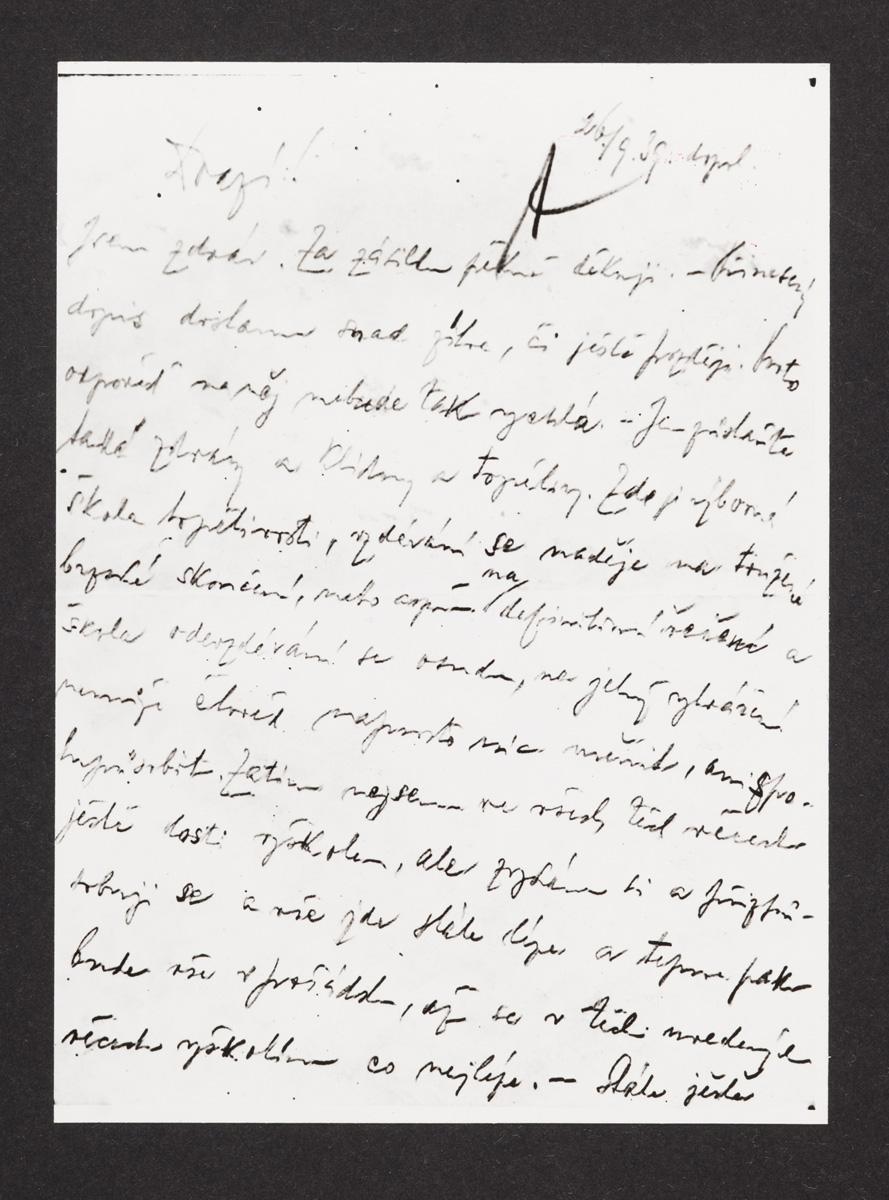 26/9.39. dopol.
Drazí!
Jsem zdráv. Za zásilku pěkně děkuji. –
dopis dostanu snad zítra, či ještě později. Proto
odpověď na něj nebude tak rychlá. – Jen zůstaňte
také zdrávy a klidny a trpělivy. Zde je výborná
škola trpělivosti, vzdávání se naděje na toužené
brzské skončení, nebo aspoň na definitivní řešení a
škola odevzdávání se osudu, na jehož utváření
nemůže člověk naprosto nic měnit, ani spo-
lupůsobit. Zatím nejsem ve všech těch věcech
ještě dosti vyškolen, ale zvykám si a přizpů-
sobuji se a vše jde stále lépe a teprve pak
bude vše v pořádku, až se v těch uvedených
věcech vyškolím co nejlépe. – Stále ještě